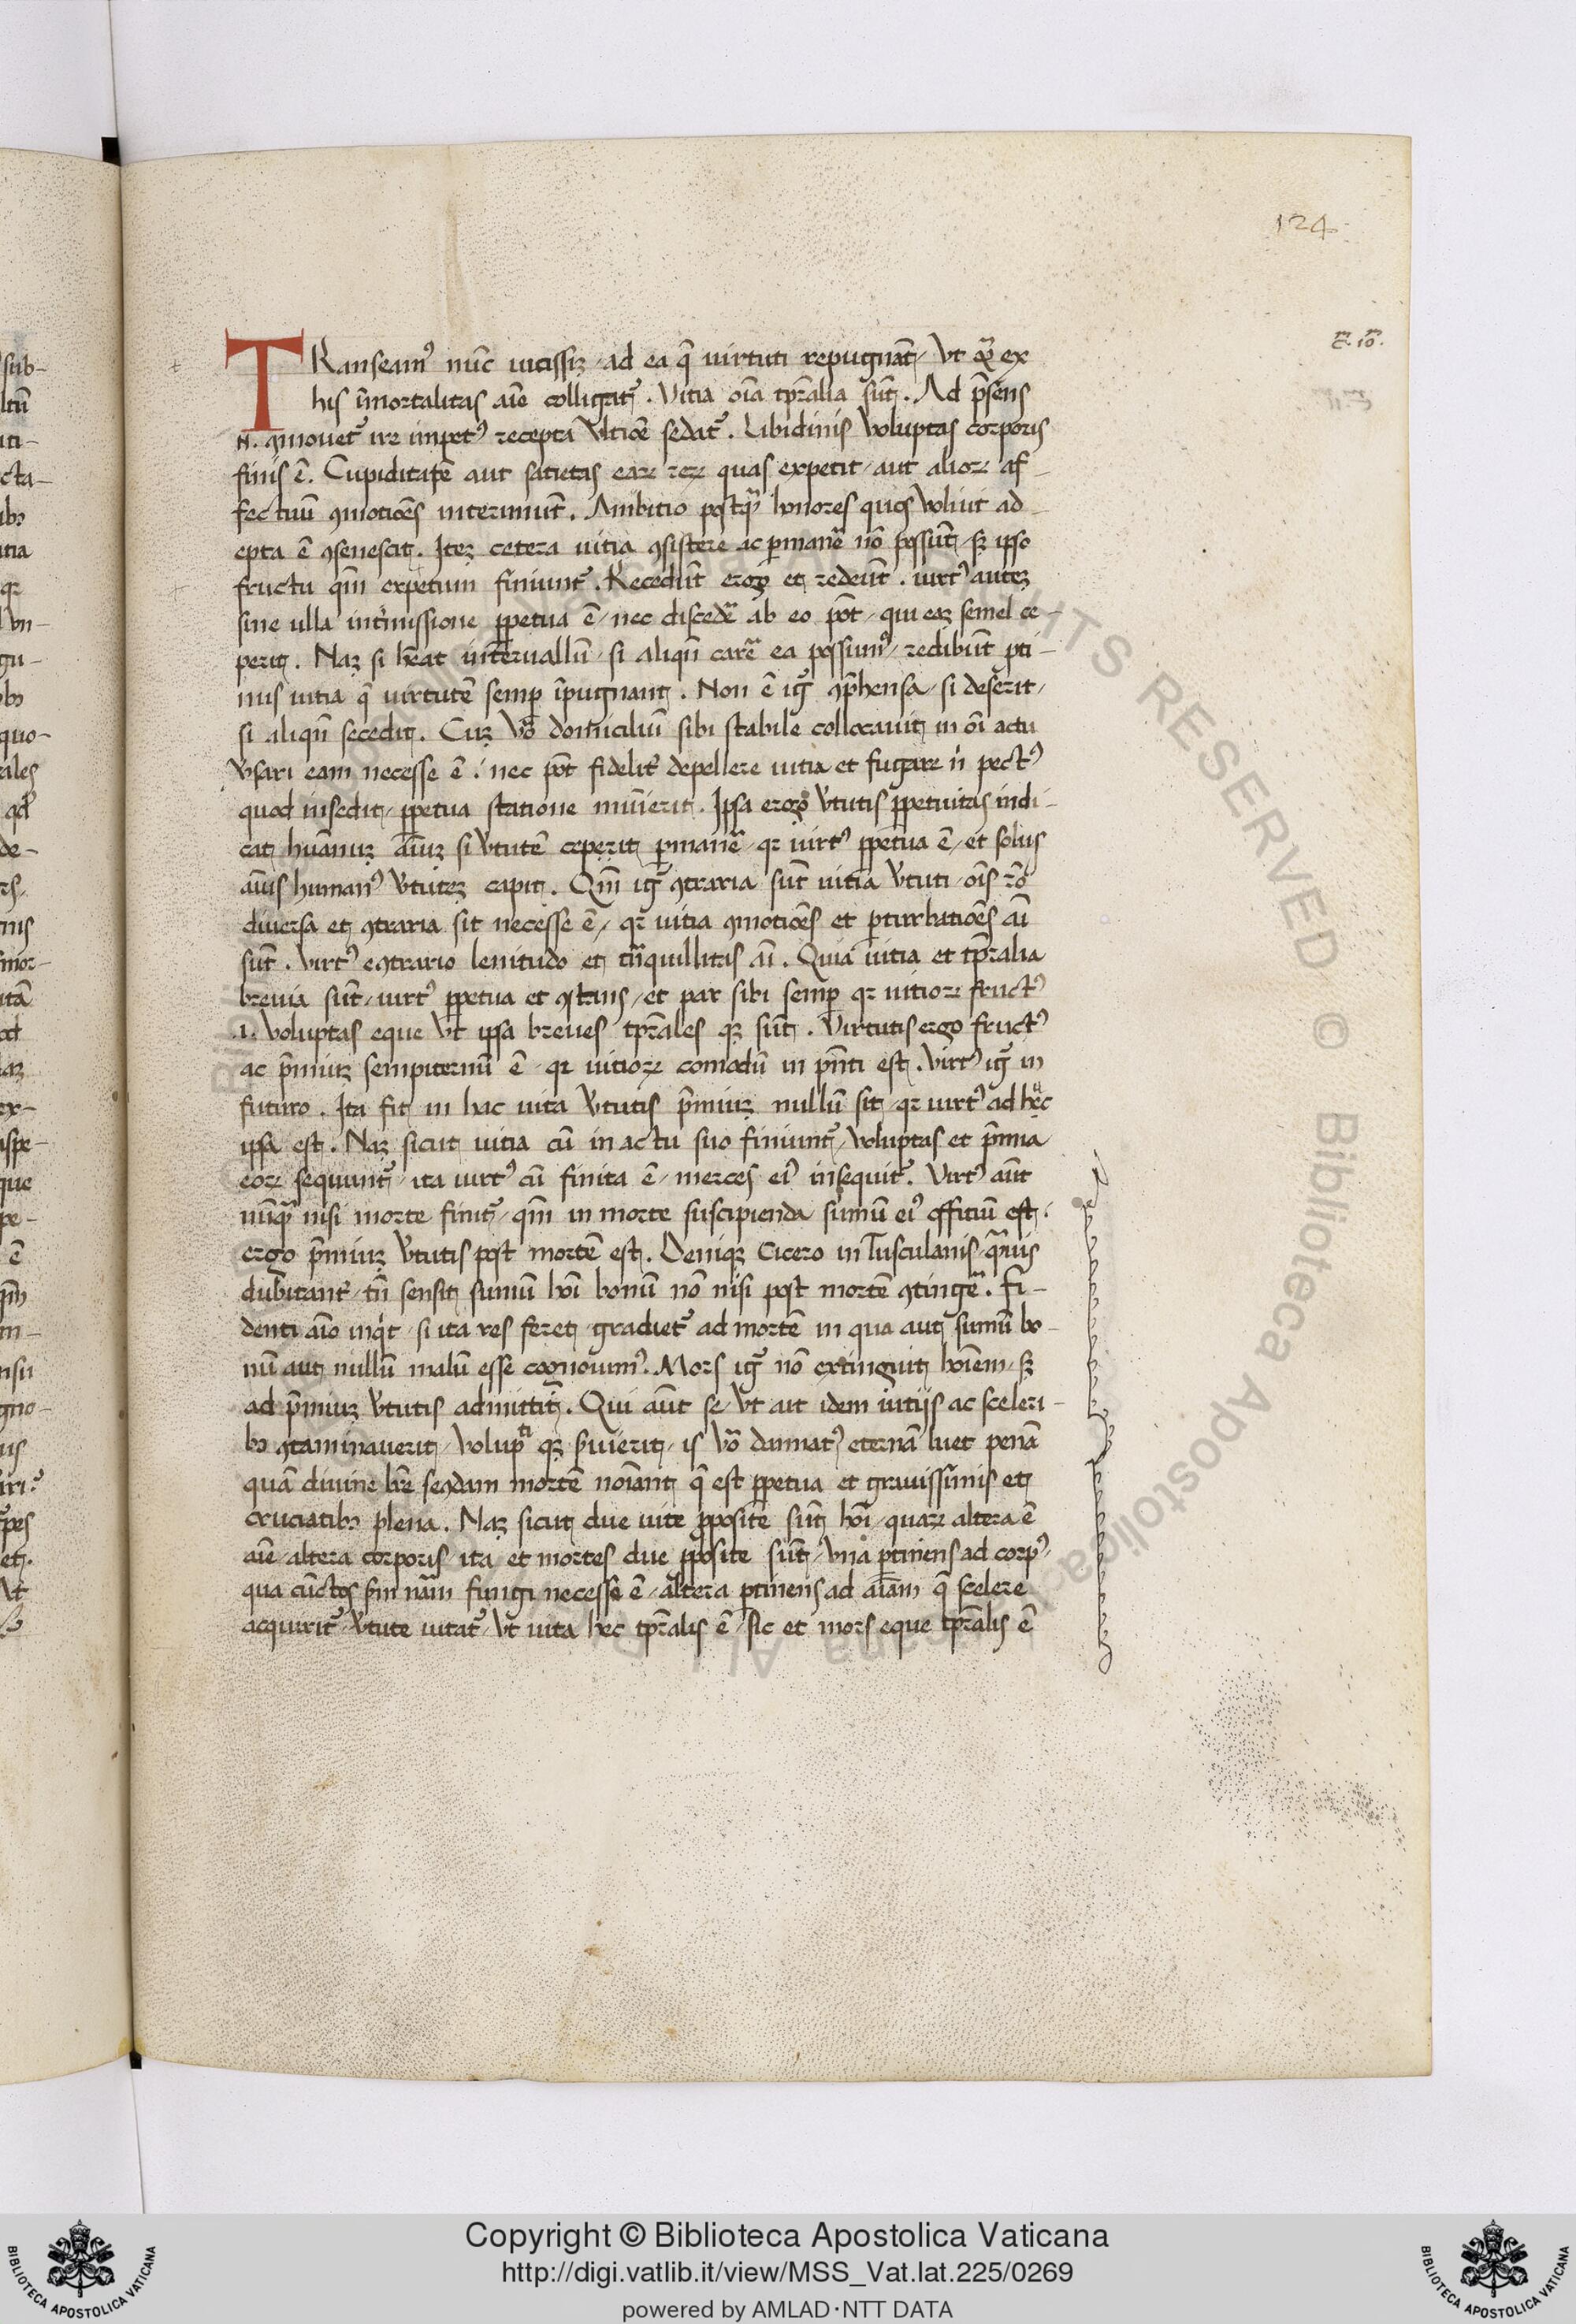 124
E. io.
TRanseamꝰ nũc uicissiꝫ ad ea q̃ uirtuti repugnãt / Vt &
his ĩmortalitas aĩe colligatꝰ. Vitia oĩa tp̃ralia sũt. Ad p̃sens
n. ꝯmouetꝰ ire impetꝰ recepta Vltiõe sedatꝰ. Libidinis Voluptas corporis
finis ẽ. Cupiditatẽ aut satietas eaꝝ reꝝ quas expetit / aut alioꝝ af-
fectuũ ꝯmotiões interimũt. Ambitio postq̃ honores quos Voluit ad-
epta ẽ ꝯsenescit. Iteꝫ cetera uitia ꝯsistere ac ꝑmanẽ nõ possũt / sꝫ ipso
fructu qm̃ expetum finiuntꝰ. Recedũt ergo et redeũt. uirtꝰ auteꝫ
sine ulla int̃missione ꝑpetua ẽ / nec discedẽ ab eo põt / qui eaꝫ semel ce-
perit. Naꝫ si hẽat int̃eruallũ / si aliqñ carẽ ea possumꝰ / redibũt pti-
nus uitia q̃ uirtutẽ semꝑ ĩpugnant. Non ẽ igꝰ ꝯp̃hensa / si deserit /
si aliqñ secedit. Cuꝫ Võ domiciliũ sibi stabile collocauit in oĩ actu
v̾sari eam necesse ẽ / nec põt fidelit̾ depellere uitia et fugare ñ pectꝰ
quod insedit / ꝑpetua statione muñierit. Ipsa ergo v̾tutis ꝑpetuitas indi-
cat huãnuꝫ aĩuꝫ si v̾tutẽ ceperit ꝑmanẽ / qꝛ uirtꝰ ꝑpetua ẽ / et solus
aĩus humanꝰ v̾tuteꝫ capit. Qm̃ igꝰ ꝯtraria sũt uitia v̾tuti / oĩs rõ
diuersa et ꝯtraria sit necesse ẽ / qꝛ uitia ꝯmotiões et ꝑturbatiões aĩ
sũt. Virtꝰ eꝯtrario lenitudo et tr̃quillitas aĩ. Quia uitia et tp̃ralia
breuia sũt / uirtꝰ ꝑpetua et ꝯstans / et par sibi semꝑ qꝛ uitioꝝ fructꝰ
.i. Voluptas eque Vt ipsa breues tp̃rales qꝫ sũt. Virtutis ergo fructꝰ
ac p̃miuꝫ sempiternũ ẽ qꝛ uitioꝝ comodũ in pñti est. Virtꝰ igꝰ in
futuro. Ita fit in hac uita v̾tutis p̃miuꝫ nullũ sit / qꝛ uirtꝰ ad hęc
ipsa est. Naꝫ sicut uitia cũ in actu suo finiuntꝰ / Voluptas et p̃mia
eoꝝ sequuntꝰ / ita uirtꝰ cũ finita ẽ / merces eiꝰ insequitꝰ. Virtꝰ aũt
nũq̃ nisi morte finitꝰ / qm̃ in morte suscipienda sũmũ eiꝰ offitiũ est.
ergo p̃miuꝫ v̾tutis post mortẽ est. Deniqꝫ Cicero in Tusculanis / q̃uis
dubitant̾ / tñ sensit sũmũ hoĩ bonũ nõ nisi post mortẽ ꝯtingẽ. Fi-
denti aĩo inqͥt / si ita res feret / gradietꝰ ad mortẽ in qua aut sũmũ bo-
nũ aut nullũ malũ esse cognouimꝰ. Mors igꝰ nõ extinguit hoĩem / sꝫ
ad p̃miuꝫ v̾tutis admittit. Qui aũt se / Vt ait idem uitijs ac sceleri-
bꝫ ꝯtaminauerit / Volupᵗⁱ qꝫ s̾uierit / is Võ damnatꝰ eternã luet penã
quã diuine lr̃e seꝯdam mortẽ noĩant / q̃ est ꝑpetua et grauissimis et
cruciatibꝫ plena. Naꝫ sicut due uite ꝓposite sũt hoĩ / quaꝝ altera ẽ
aĩe / altera corporis / ita et mortes due ꝓposite sũt / Vna ꝑtinens ad corpꝰ /
qua cũctos s̃m nãm fungi necesse ẽ / altera ꝑtinens ad aĩam q̃ scelere
acquiritꝰ / v̾tute uitatꝰ / Vt uita hec tp̃ralis ẽ / sic et mors eque tp̃ralis ẽ
Copyright © Biblioteca Apostolica Vaticana
http://digi.vatlib.it/view/MSS_Vat.lat.225/0269
powered by AMLAD·NTT DATA
BIBLIOTECA APOSTOLICA VATICANA
BIBLIOTECA APOSTOLICA VATICANA